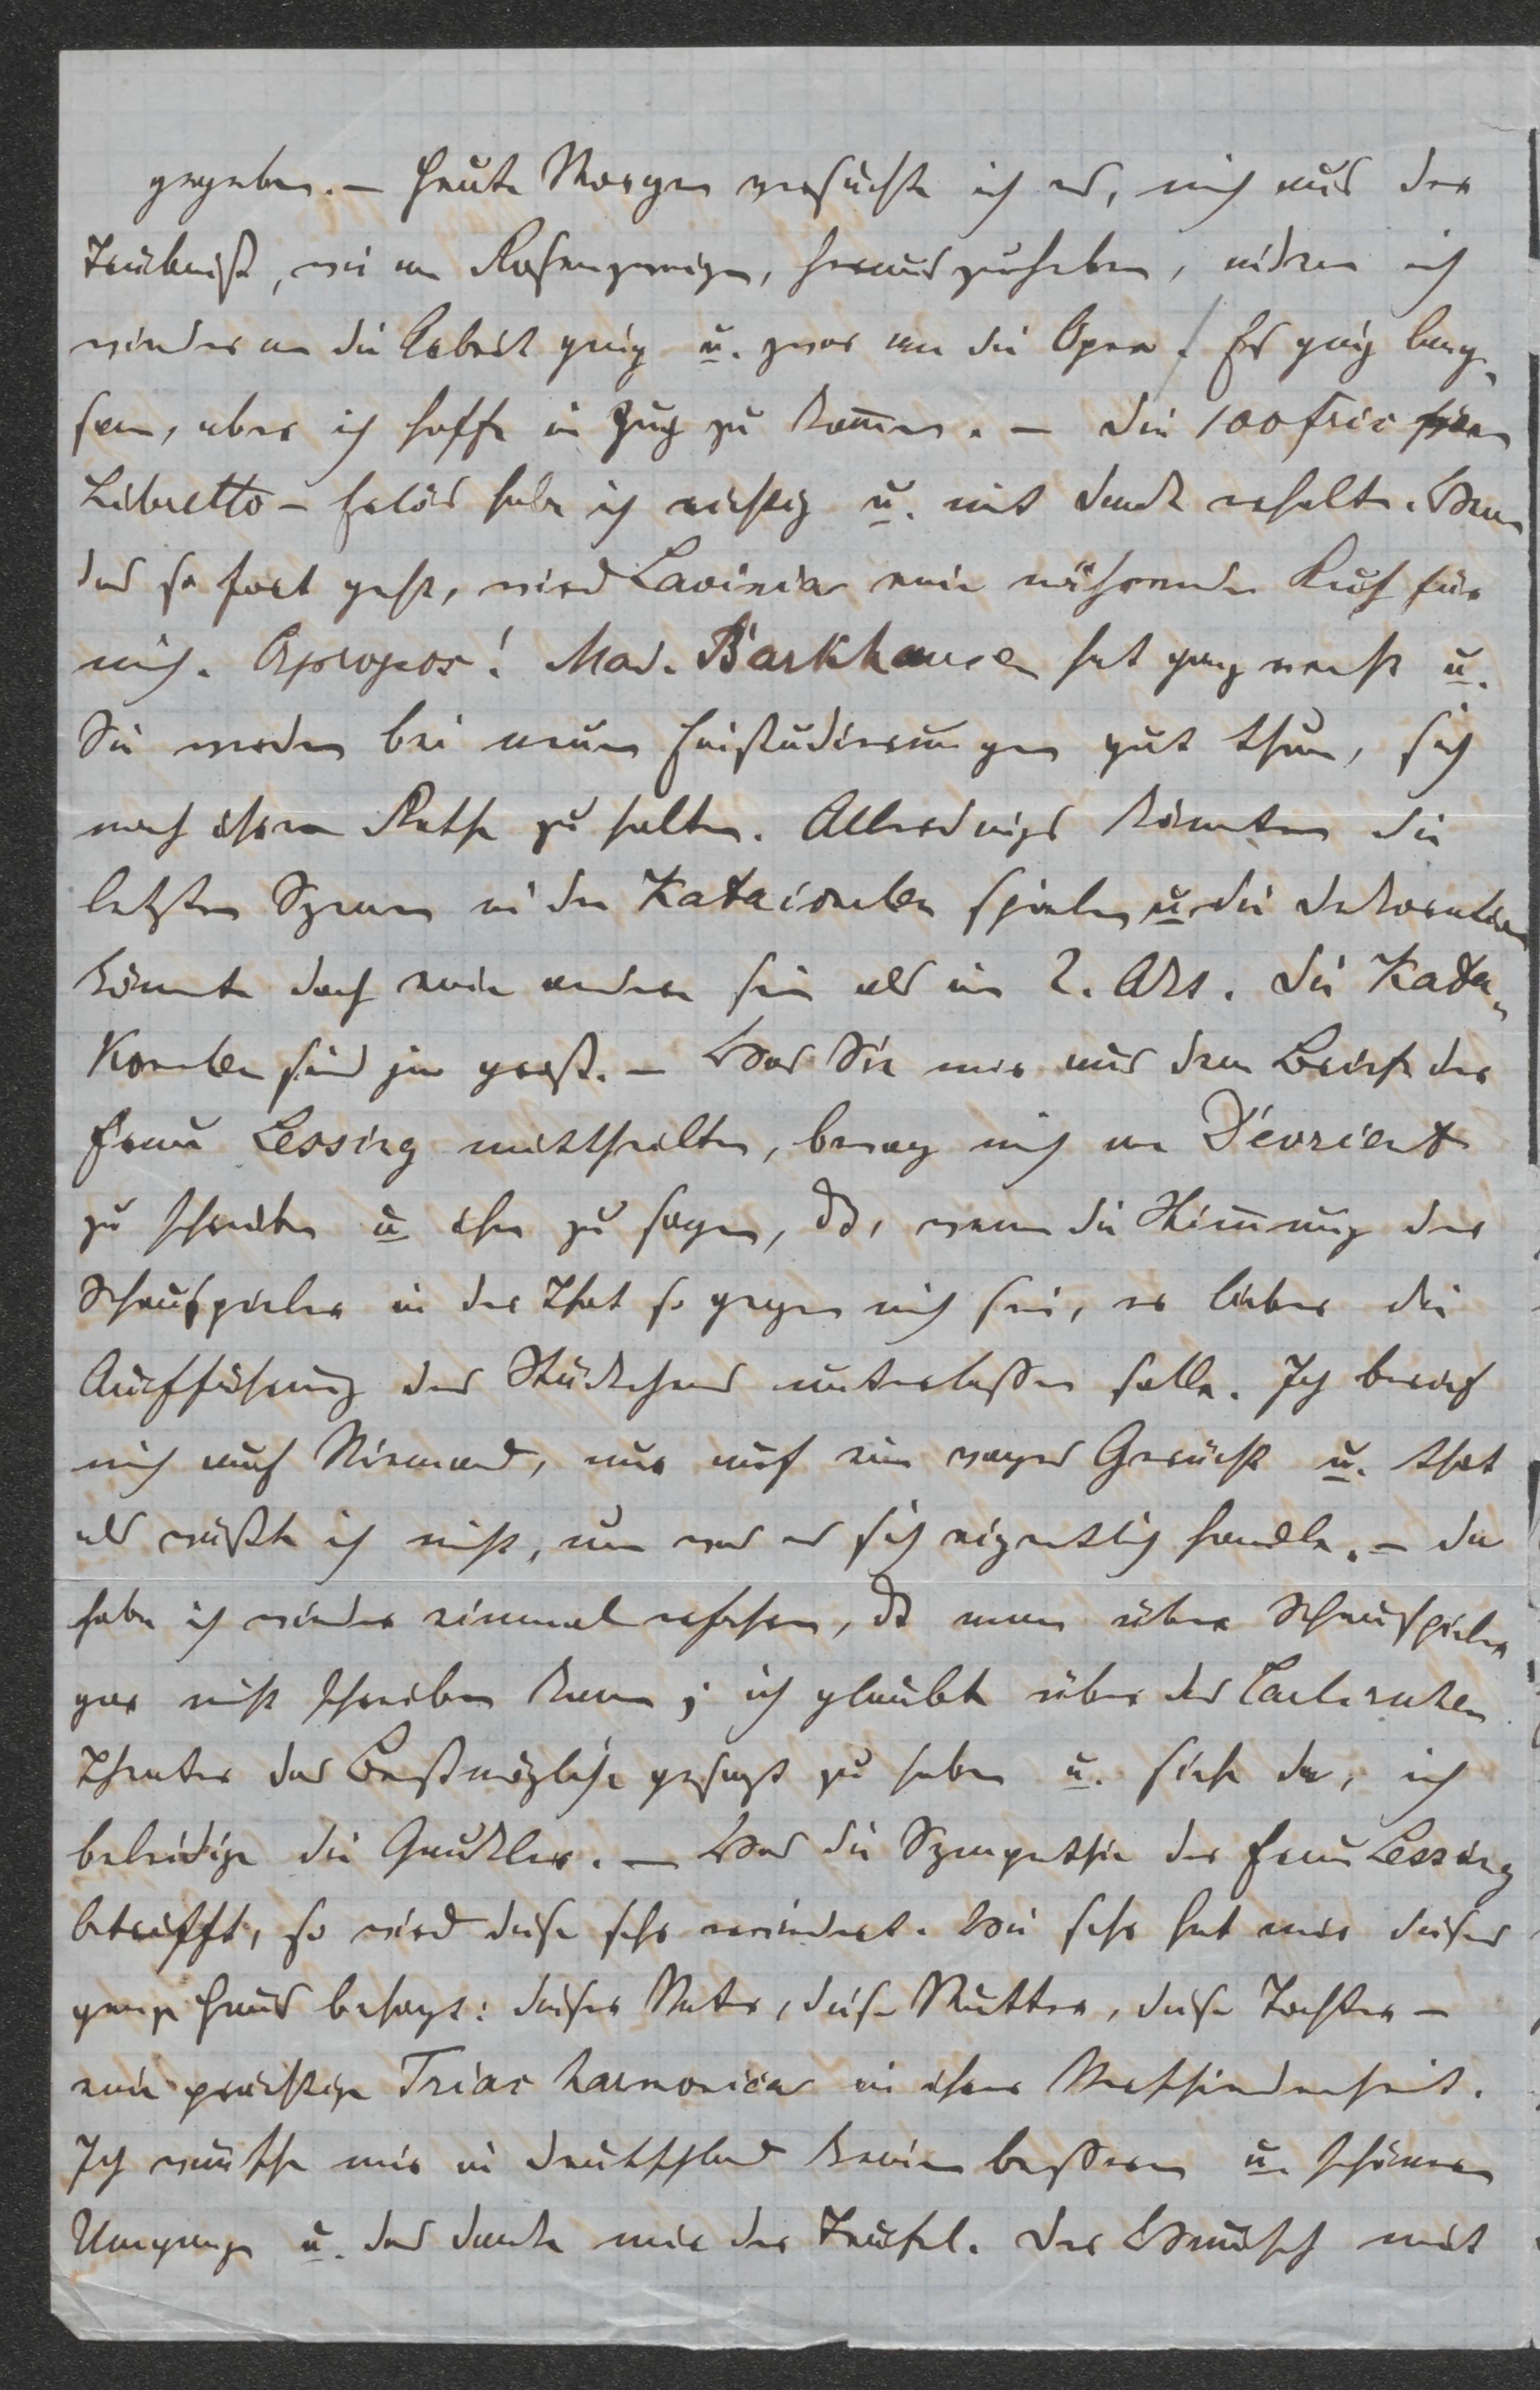 gegeben. — Heute Morgen versuchte ich es, mich aus der
Trübniß, wie an Rosenzweigen, herauszuheben, indem ich
wieder an die Arbeit ging u. zwar an die Oper. Es ging lang-
sam, aber ich hoffe in Zug zu kom̄en. — Die 100 frcs
Libretto-Erlös habe ich richtig u. mit Dank erhalten. Wenn
das so fort geht, wird Lavinia eine nährende Kuh für
mich. Apropos! Mad. Barkhausen hat ganz recht u.
Sie werden bei neuen Einstudierungen gut thun, sich
nach ihrem Rathe zu halten. Allerdings könnten die
letzten Szenen in den Katacomben spielen u. die Dekoration
könnte doch eine andere sein als im 2. Akt. Die Kata-
komben sind ja groß. — Was Sie mir aus dem Briefe der
Frau Lessing mittheilten, bewog mich an Devrient
zu schreiben u ihm zu sagen, dß, wenn die Stim̄ung der
Schauspieler in der That so gegen mich sei, er lieber die
Aufführung des Stückchens unterlassen solle. Ich berief
mich auf Niemand, nur auf ein vages Gerücht u. that
als wüßte ich nicht, um was es sich eigentlich handle. — Da
habe ich wieder einmal erfahren, dß man über Schauspieler
gar nicht schreiben kann; ich glaubte über das Carlsruher
Theater das Bestmögliche gesagt zu haben u. siehe da, ich
beleidige die Gaukler. — Was die Sympathie der Frau Lessing
betrifft, so wird diese sehr erwiedert. Wie sehr hat mir dieses
ganze Haus behagt: dieser Vater, diese Mutter, diese Tochter —
eine prächtige Trias harmonica in ihrer Verschiedenheit.
Ich wünsche mir in Deutschland keinen besseren u. schöneren
Umgang u. das danke mir der Teufel. Der Wunsch mit